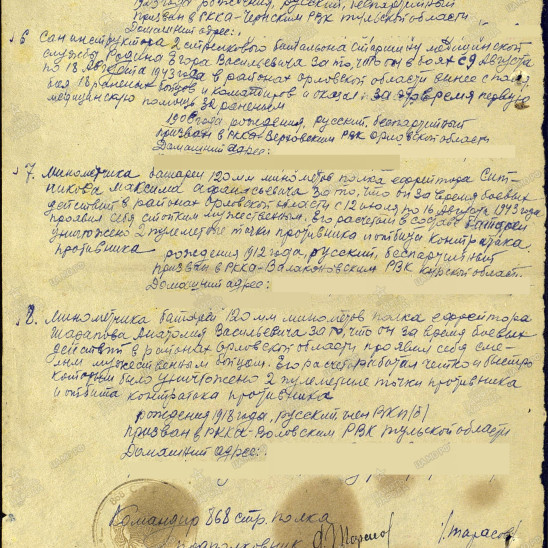 1923 года рождения, русский, беспартийный
Призван в РККА - Чернским РВК Тульской области
Домашний адрес:
6 Санинструктора 2 стрелкового батальона старшину медицинской
службы Родина Егора Васильевича за то, что он в боях с 9 Августа
по 18 Августа 1943 года в районах Орловской области вынес с поля
боя 18 раненых бойцов и командиров и оказал за это время первую
медицинскую помощь 32 раненым
190 года рождения, русский, беспартийный
призван в РККА - Верховским РВК Орловской области
Домашний адрес:
7. Минометчика батареи 120 мм минометов полка ефрейтора Сит-
никова Максима Афанасьевича за то, что он за время боевых
действий в районах Орловской области с 12 июля по 16 Августа 1943 года
проявил себя стойким мужественным. Его расчетом в составе батареи
уничтожено 2 пулеметные точки противника и отбита контратака
противника
рождения 1912 года, русский, беспартийный
Призван в РККА - Валаконовским РВК Курской област.
Домашний адрес:
8. Минометчика батареи 120 мм минометов полка ефрейтора
Анатолия Васильевича за то, что он за время боевых
действий в районах Орловской области проявил себя сме-
лым мужественным бойцом. Его расчет работал четко и быстро
которым было уничтожено 2 пулеметные точки противника
и отбита контратака противника
рождения 1918 года, русский член ВКП(б)
призван в РККА - Воловским РВК Тульской области
Домашний адрес:
Командир 868 стр. полка
подполковник /Тарасов/